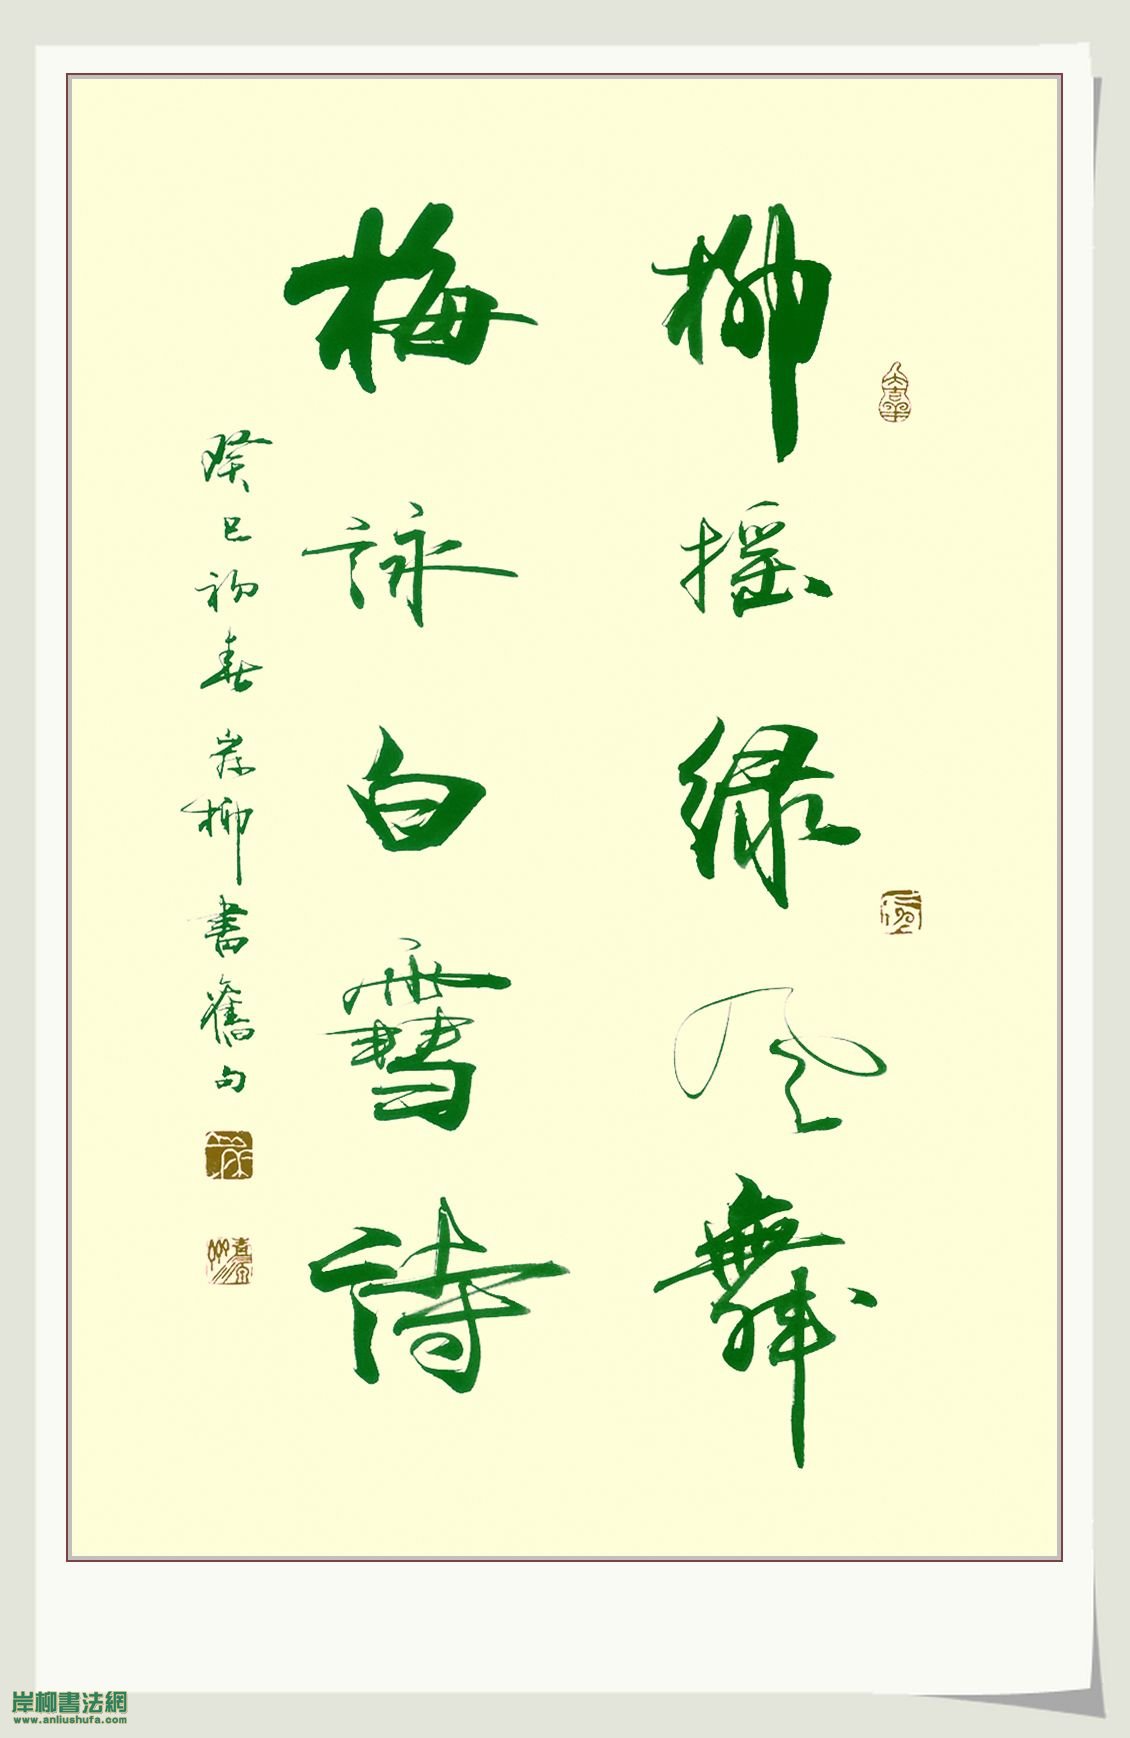 柳摇绿风舞
梅詠白雪詩
癸巳初春岸柳書舊句
岸柳書法網
www.anliushufa.com